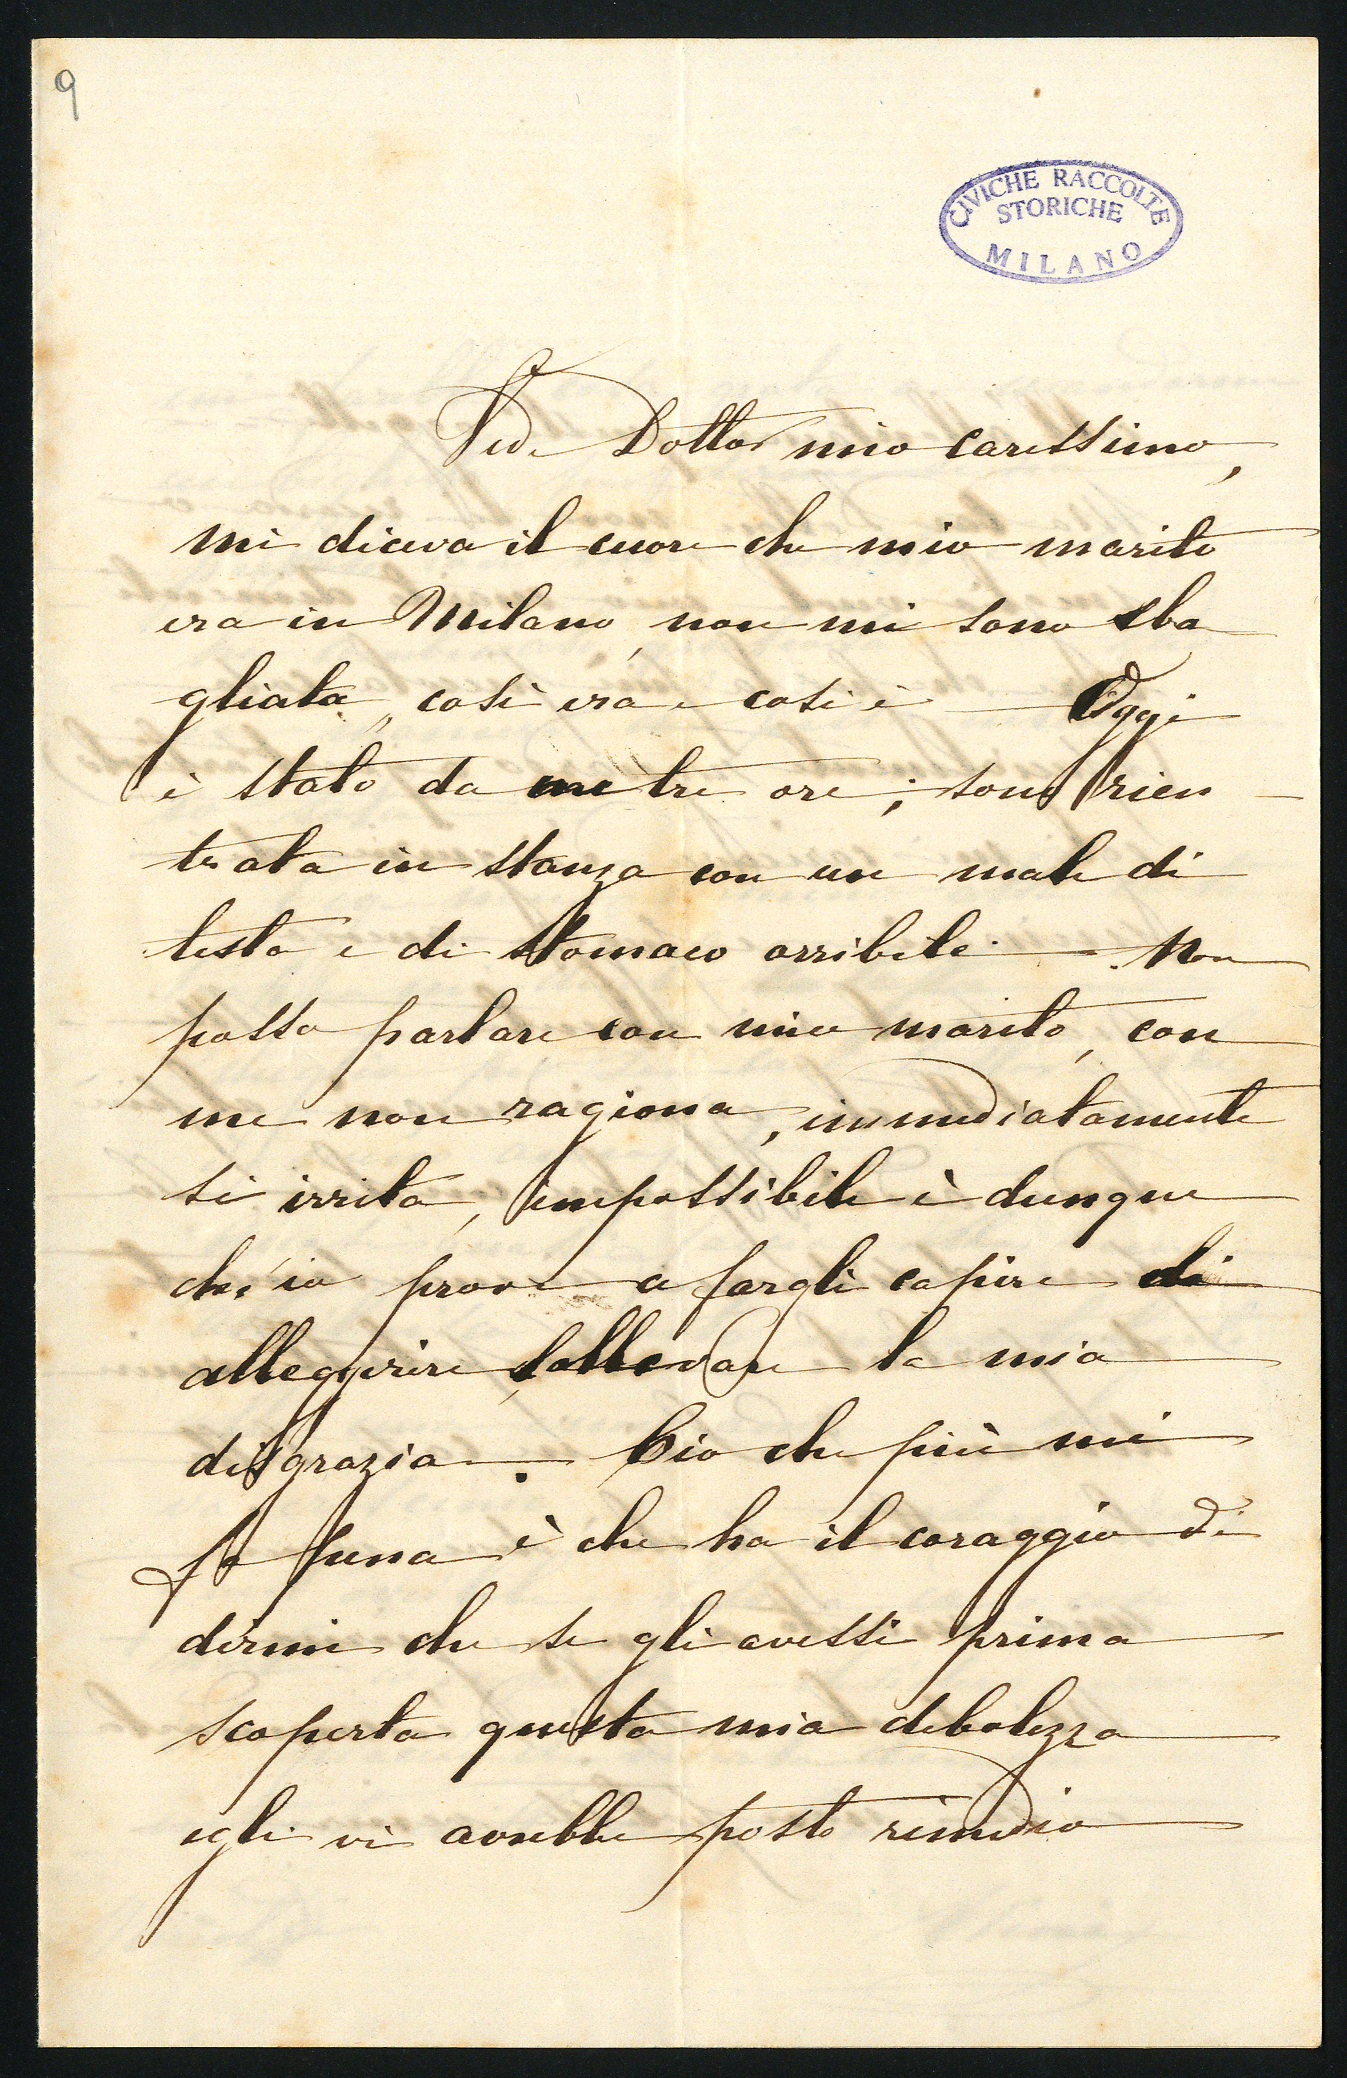 9
CIVICHE RACCOLTE
STORICHE
MILANO
Vede Dottor mio carissimo,
mi diceva il cuore che mio marito
era in Milano, non mi sono sba
gliata, così era e così è — Oggi
è stato da me tre ore; sono rien
trata in stanza con un male di
testa e di stomaco orribile. — Non
posso parlare con mio marito, con
me non ragiona, immediatamente
si irrita, impossibile è dunque
ch'io prove a fargli capire di
alleggerire, sollevare la mia
disgrazia. — Ciò che più mi
fa pena è che ha il coraggio di
dirmi che se gli avessi prima
scoperta questa mia debolezza
egli vi avrebbe posto rimedio